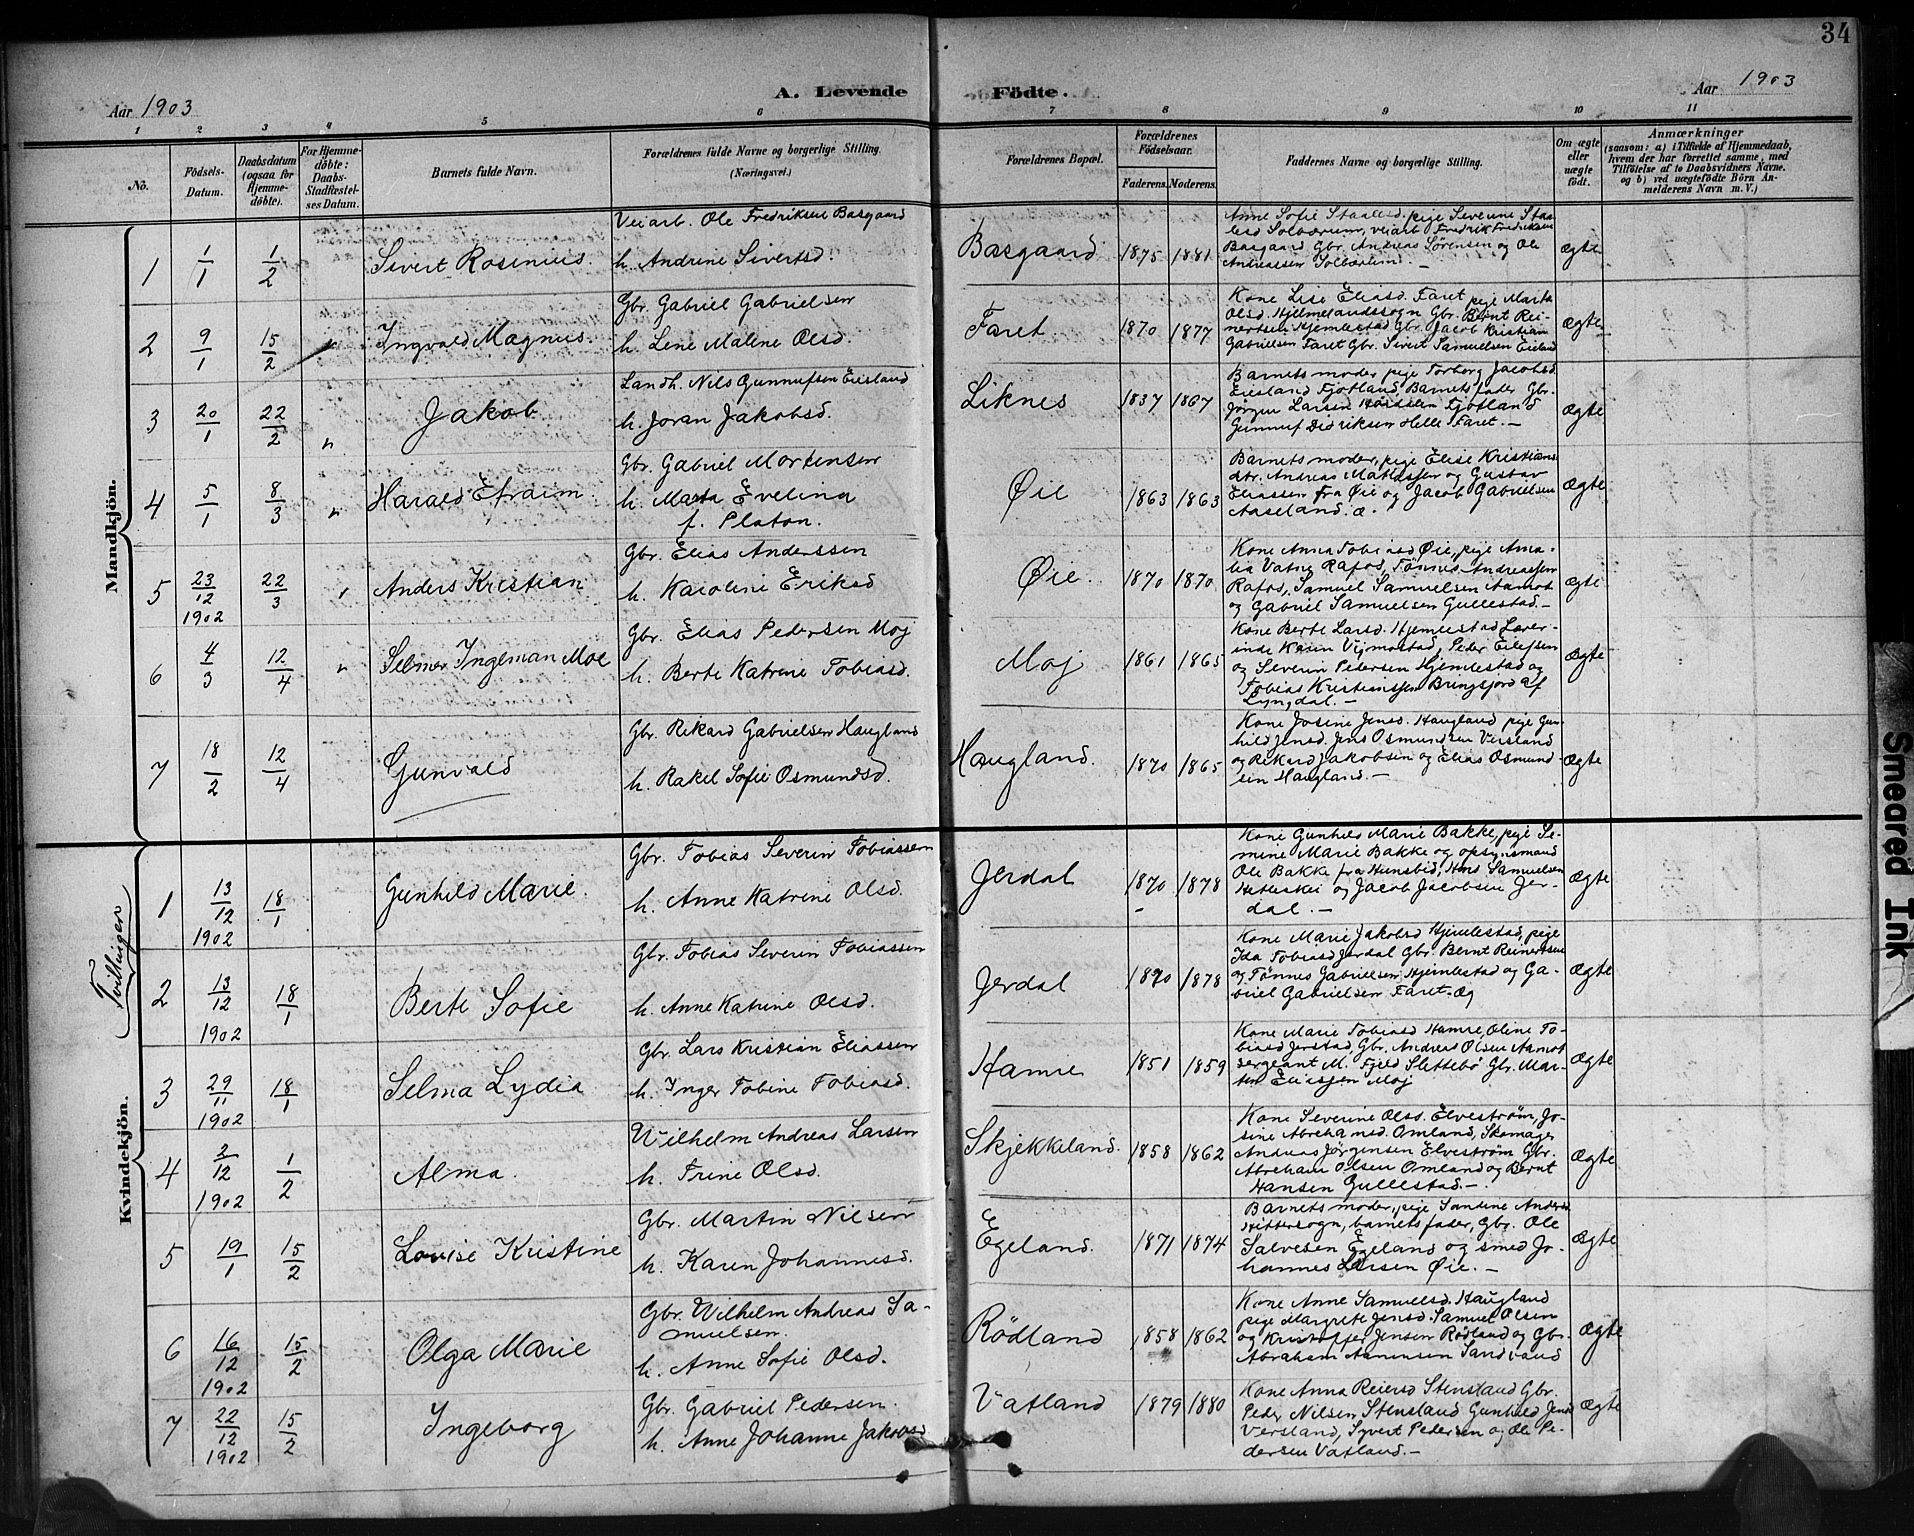 34
Aar 1903
A. Levende Födte.
Aar 1903
1 2 3 4 5 6 7 8 9 10 11
No.
Födsels-Datum.
Daabsdatum (ogsaa for Hjemmedöbte).
For Hjemmedöbte: Daabs-Stadfæstelses Datum.
Barnets fulde Navn.
Forældrenes fulde Navne og borgerlige Stilling (Næringsvei.)
Forældrenes Bopæl.
Forældrenes Födselsaar.
Faderens. Moderens.
Faddernes Navne og borgerlige Stilling.
Om ægte eller uægte födt.
Anmærkninger
(saasom: a) i Tilfælde af Hjemmedaab, hvem der har forrettet samme, med Tilföielse af to Daabsvidners Navne. og b) ved uægtefödte Börn Anmelderens Navn m. V.)
Mandkjön.
1 1/1 1/2 Sivert Rosenius.
Veiarb. Ole Fredriksen Basgaard
h. Andrine Sivertsd.
Basgaard 1875 1881
Anne Sofie Staalesd. pige Severine Staa-
lesd Solbærum, veiarb Fredrik Fredriksen
Basgaard Gbr. Andreas Sørensen og Ole
Andreassen Solbærum. —
Ægte
2 9/1 15/2 " Ingvald Magnus.
Gbr. Gabriel Gabrielsen
h. Lene Malene Olsd.
Faret 1870 1877
Kone Lise Eliasd. Faret pige Marta
Olsd. Hjelmelandssogn Gbr. Bernt Rei-
nertsen Hjemlestad Gbr. Jacob Kristian
Gabrielsen Faret Gbr. Sivert Samuelsen Eieland
Ægte
3 20/1 22/2 " Jakob
Landh. Nils Gunnufsen Eiesland
h. Joran Jakobsd.
Liknes 1837 1867
Barnets moder pige Torborg Jacobsd
Eiesland Fjotland, Barnets fader Gbr.
Jørgen Larsen Fjotland
Gunnuf Didriksen Helle Faret. —
Ægte
4 5/1 8/3 " Harald Efraim
Gbr. Gabriel Mortensen
h. Marta Evelina
f. Platon.
Øie 1863 1863
Barnets moder, pige Elise Kristians
dtr. Andreas Mathissen og Gustav
Eliassen fra Øie og Jacob Gabrielsen
Aaseland.
Ægte
5 23/12 1902 22/3 " Anders Kristian
Gbr. Elias Anderssen
h. Karoline Eriksd
Øie. 1870 1870
Kone Anna Tobiasd Øie, pige Ama-
lia Vatne Rafos, Tønnes Andreassen
Rafos, Samuel Samuelsen Aamot
og Gabriel Samuelsen Gullestad. —
Ægte
6 4/3 12/4 " Selmer Ingeman Moe
Gbr. Elias Pedersen Moj
h. Berte Katrine Tobiasd.
Moj 1861 1865
Kone Berte Larsd. Hjemlestad Lærer-
inde Karin Vigmostad, Peder Eilefsen
og Severin Pedersen Hjemlestad og
Tobias Kristianssen Bringsjord af
Lyngdal. —
Ægte
7 18/2 12/4 Gunvald
Gbr. Rikard Gabrielsen Haugland
h. Rakel Sofie Osmundsd.
Haugland. 1870 1865
Kone Josine Jensd. Haugland pige Gun-
hild Jensd. Jens Osmundsen Versland
og Rikard Jakobsen og Elias Osmund-
sen Haugland. —
Ægte
Kvindekjön.
Tvillinger
1 13/12 1902 18/1 Gunhild Marie.
Gbr. Tobias Severin Tobiassen
h. Anne Katrine Olsd.
Jerdal 1870 1878
Kone Gunhild Marie Bakke, pige Se-
mine Marie Bakke og opsynsmand
Ole Bakke fra Hunsbid, Hans Samuelsen
og Jacob Jacobsen Jer-
dal. —
Ægte
2 13/12 1902 18/1 Berte Sofie
Gbr. Tobias Severin Tobiassen
h. Anne Katrine Olsd.
Jerdal 1870 1878
Kone Marie Jakobsd Hjemlestad, pige
Ida Tobiasd Jerdal Gbr. Bernt Reinertsen
og Tønnes Gabrielsen Hjemlestad og Ga-
briel Gabrielsen Faret. og
Ægte
3 29/11 1902 18/1 Selma Lydia
Gbr. Lars Kristian Eliassen
h. Inger Tobine Tobiasd.
Hamre 1851 1859
Kone Marie Tobiasd Hamre, Oline To-
biasd Jerstad, Gbr. Andreas Olsen Aamot
sergeant M. Fjeld Slettebø Gbr. Mar-
ten Moj
Ægte
4 2/12 1902 1/2 Alma.
Wilhelm Andreas Larsen
h. Trine Olsd.
Skjekkeland 1858 1862
Kone Severine Olsd. Elvestrøm, Jo-
sine Abrehamsd. Omland, Skomager
Andreas Jörgensen Elvestrøm Gbr.
Abreham Olsen Omland og Bernt
Hansen Gullestad. —
Ægte
5 19/1 15/2 Lovise Kristine
Gbr. Martin Nilsen
h. Karen Johannesd.
Egeland. 1871 1874
Barnets moder, pige Sandine Andersd
Hittersogn, barnets fader, Gbr. Ole
Salvesen Egeland og smed Jo-
hannes Larsen Øie. —
Ægte
6 16/12 1902 15/2 Olga Marie
Gbr. Wilhelm Andreas Sa-
muelsen.
h. Anne Sofie Olsd.
Rödland 1858 1862
Kone Anne Samuelsd. Haugland
pige Margrete Jensd. Samuel Olsen
og Kristoffer Jensen Rödland og Gbr.
Abraham Aanensen Sandvand
Ægte
7 22/12 1902 15/2 Ingeborg
Gbr. Gabriel Pedersen.
h. Anne Johanne Jakobsd
Vatland 1879 1880
Kone Anna Reiersd Stensland Gbr.
Peder Nilsen Stensland Gunhild Jensd
Versland, Syvert Pedersen og Ole Pe-
dersen Vatland. —
Ægte
Smeared Ink